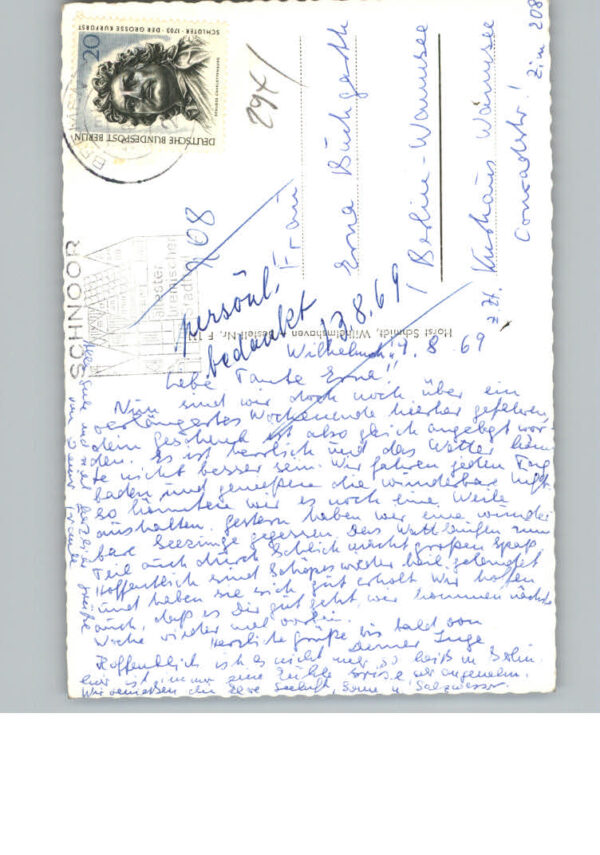 SCHLÜTER · 1703 · DER GROSSE KURFÜRST
20
DEUTSCHE BUNDESPOST BERLIN
SCHLOSS CHARLOTTENBURG
SCHNOOR
ältester
bremischer
Stadtteil
294/
Frau
Erna
1 Berlin-Wannsee
z. Zt. Kurhaus Wannsee
Conradstr! Zim 208
208
persönl.!
bedankt 13.8.69
Horst Schmidt, Wilhelmshaven · Bestell-Nr. F
Wilhelmsh. 8 69
Liebe Tante Erna!!
Nun sind wir doch noch über ein
verlängertes Wochenende hierher gefahren,
dein Geschenk ist also gleich angelegt wor-
den. Es ist herrlich und das Wetter könn-
te nicht besser sein. Wir fahren jeden Tag
baden und genießen die wunderbare Luft.
So könnten wir es noch eine Weile
aushalten. Gestern haben wir eine wunder-
bar Seezunge gegessen. Das Wattlaufen zum
Teil auch durch Schlick macht großen Spaß
Hoffentlich sind Schöpes wieder heil gelandet
und haben sie sich gut erholt. Wir hoffen
auch, daß es Dir gut geht, wir kommen nächste
Woche wieder mal vorbei.
Herzliche Grüße bis bald von
Deiner Inge
Hoffentlich ist es nicht mehr so heiß in Berlin.
hier ist immer eine kühle Brise, angenehm.
Wir genießen die Seeluft, Sonne u. Salzwasser.
Alles Gute und viele herzliche Grüße
von Deiner